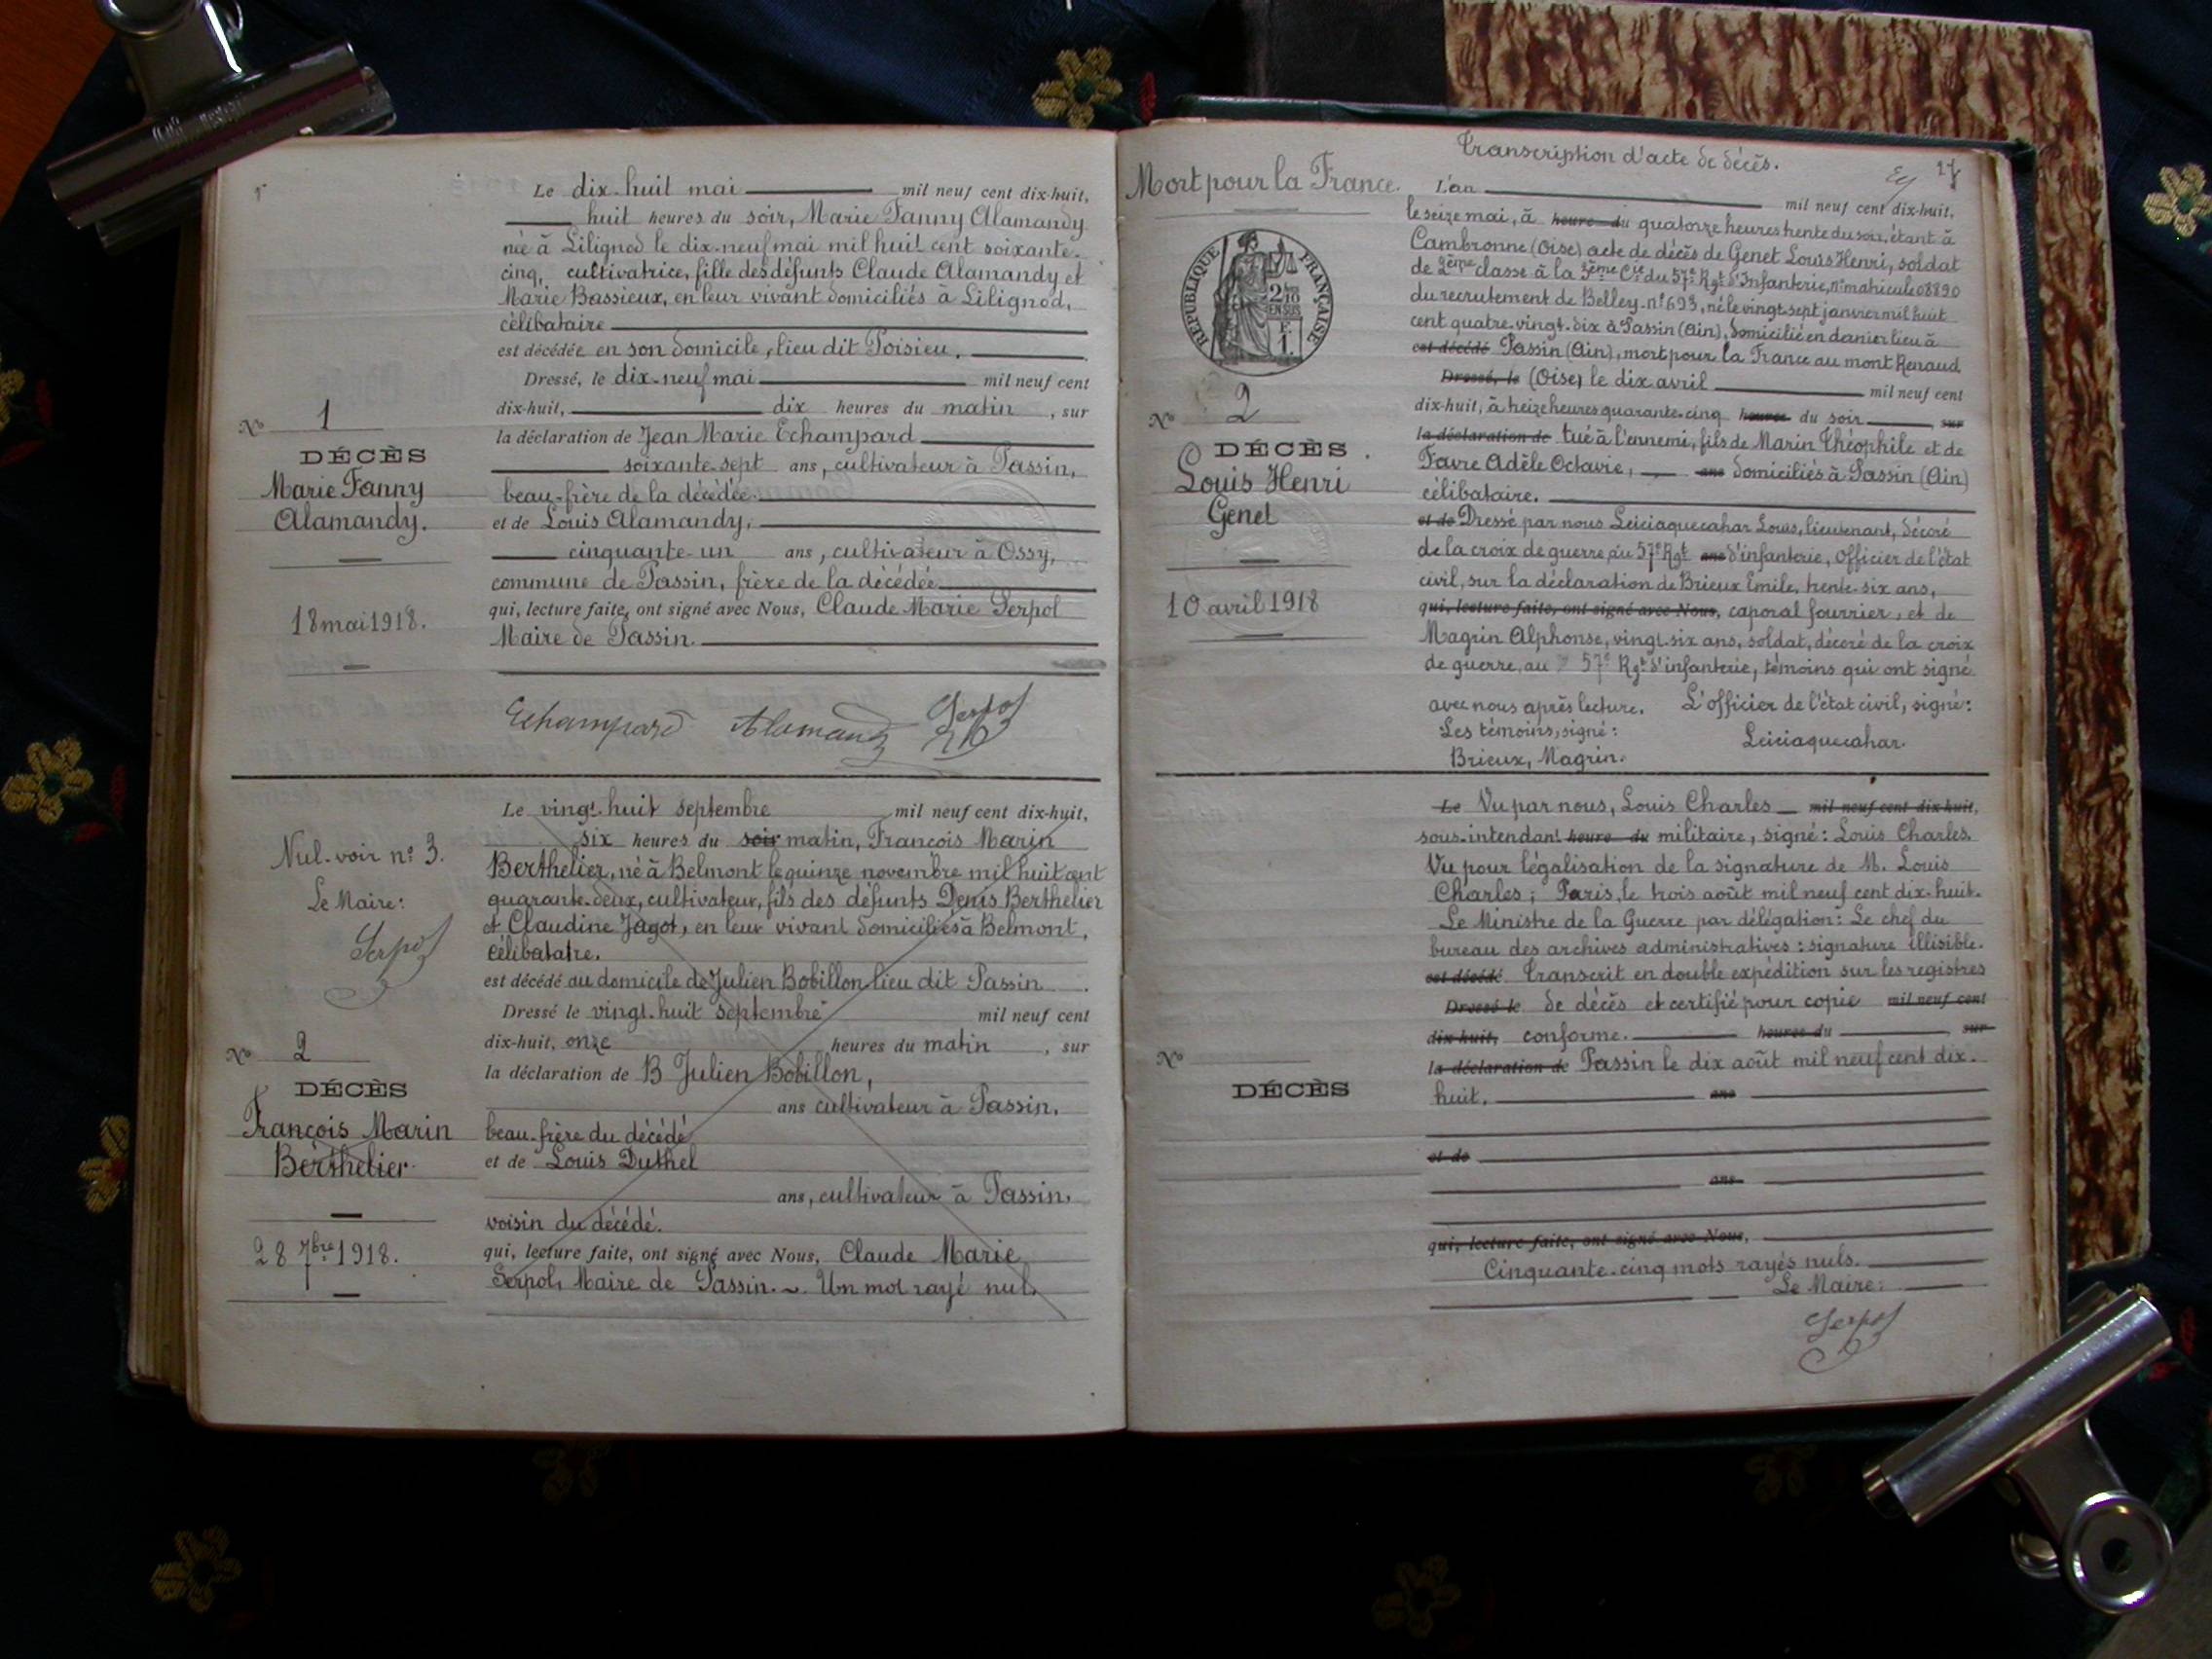 Le dix-huit mai mil neuf cent dix-huit,
huit heures du soir, Marie Fanny Alamandy
née à Lilignod le dix-neuf mai mil huit cent soixante-
cinq, cultivatrice, fille des défunts Claude Alamandy et
Marie Bassieux, en leur vivant domiciliés à Lilignod,
célibataire
est décédée en son domicile, lieu dit Poisieu.
Dressé, le dix-neuf mai mil neuf cent
dix-huit, dix heures du matin, sur
la déclaration de Jean Marie Echampard
soixante-sept ans, cultivateur à Passin,
beau-frère de la décédée
et de Louis Alamandy,
cinquante-un ans, cultivateur à Ossy,
commune de Passin, frère de la décédée
qui, lecture faite, ont signé avec Nous, Claude Marie Serpol
Maire de Passin.
Nº 1
DÉCÈS
Marie Fanny
Alamandy.
18 mai 1918.
Echampard Alamandy Serpol
Le vingt-huit septembre mil neuf cent dix-huit,
six heures du soir matin, François Marin
Berthelier, né à Belmont le quinze novembre mil huit cent
quarante-deux, cultivateur, fils des défunts Denis Berthelier
et Claudine Jagot, en leur vivant domiciliés à Belmont,
célibataire.
est décédé au domicile de Julien Bobillon lieu dit Passin.
Dressé le vingt-huit septembre mil neuf cent
dix-huit, onze heures du matin, sur
la déclaration de B Julien Bobillon,
ans cultivateur à Passin,
beau-frère du décédé
et de Louis Duthel
ans, cultivateur à Passin,
voisin du décédé.
qui, lecture faite, ont signé avec Nous, Claude Marie
Serpol, Maire de Passin. ~. Un mot rayé nul.
Nul. voir nº 3.
Le Maire:
Serpol
Nº 2
DÉCÈS
François Marin
Berthelier
28 7bre 1918.
Transcription d'acte de décès.
27
Mort pour la France.
RÉPUBLIQUE FRANÇAISE
2/10 EN SUS
F. 1.
Nº 2
DÉCÈS
Louis Henri
Genet
10 avril 1918
L'an mil neuf cent dix-huit,
le seize mai, à heure du quatorze heures trente du soir, étant à
Cambronne (Oise) acte de décès de Genet Louis Henri, soldat
de 2ème classe à la 3ème Cie du 57e Rgt d'Infanterie, nº matricule 08890
du recrutement de Belley. nº 693, né le vingt-sept janvier mil huit
cent quatre-vingt-dix à Passin (Ain), domicilié en dernier lieu à
est décédé Passin (Ain), mort pour la France au mont Renaud
Dressé, le (Oise) le dix avril mil neuf cent
dix-huit, à seize heures quarante-cinq heures du soir, sur
la déclaration de tué à l'ennemi, fils de Marin Théophile et de
Favre Adèle Octavie, ans domiciliés à Passin (Ain)
célibataire.
et de Dressé par nous Leiciaguecahar Louis, lieutenant, décoré
de la croix de guerre, au 57e Rgt ans d'infanterie, Officier de l'état
civil, sur la déclaration de Brieux Emile, trente-six ans,
qui, lecture faite, ont signé avec Nous, caporal fourrier, et de
Magrin Alphonse, vingt-six ans, soldat, décoré de la croix
de guerre, au 57e Rgt d'infanterie, témoins qui ont signé
avec nous après lecture. L'officier de l'état civil, signé:
Les témoins, signé: Leiciaguecahar.
Brieux, Magrin.
Le Vu par nous, Louis Charles mil neuf cent dix-huit,
sous-intendant heure du militaire, signé: Louis Charles.
Vu pour légalisation de la signature de M. Louis
Charles; Paris, le trois août mil neuf cent dix-huit.
Le Ministre de la Guerre par délégation: Le chef du
bureau des archives administratives: signature illisible.
est décédé Transcrit en double expédition sur les registres
Dressé le de décès et certifié pour copie mil neuf cent
dix-huit, conforme. heures du, sur
la déclaration de Passin le dix août mil neuf cent dix-
huit. ans
et de
ans
qui, lecture faite, ont signé avec Nous,
Cinquante-cinq mots rayés nuls.
Le Maire:
Serpol
Nº
DÉCÈS